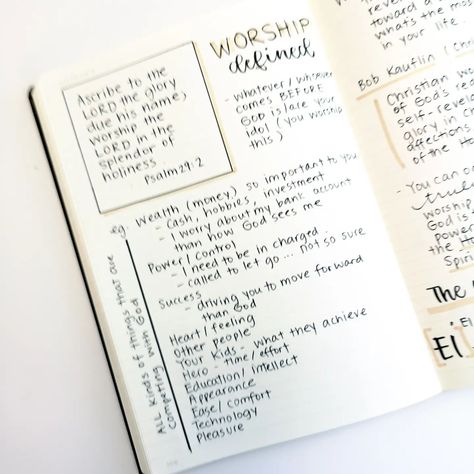 WORSHIP
defined
Ascribe to the
LORD the glory
due his name;
worship the
LORD in the
splendor of
holiness.
Psalm 29:2
- whatever/whoever
comes BEFORE
God is/are your
idol (you worship
this)
eg.
ALL kinds of things that are
competing with God
Wealth (money) so important to you
- cash, hobbies, investment
- I worry about my bank account
than how God sees me
Power/control
- I need to be in charge.
- called to let go... not so sure
Success
- driving you to move forward
than God
Heart/feeling
Other people
Your kids - what they achieve
Hero - time/effort
Education/intellect
Appearance
Ease/comfort
Technology
Pleasure
toward a
what's the mos
in your life
Bob Kauflin (
Christian wo
of God's rea
self-reve
glory in c
affections
of the Ho
- You can o
tru
worship,
God is
power
the
Spiri
The
EI
[EI